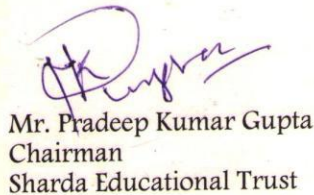 Mr. Pradeep Kumar Gupta
Chairman
Sharda Educational Trust